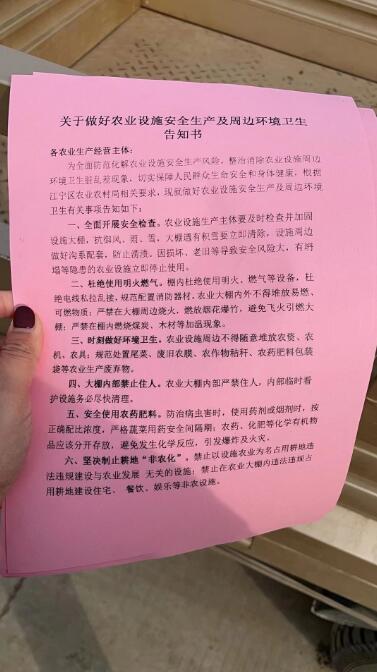 关于做好农业设施安全生产及周边环境卫生
告知书
各农业生产经营主体：
为全面防范化解农业设施安全生产风险，整治消除农业设施周边
环境卫生脏乱差现象，切实保障人民群众生命安全和身体健康，根据
江宁区农业农村局相关要求，现就做好农业设施安全生产及周边环境
卫生有关事项告知如下：
一、全面开展安全检查。农业设施生产主体要及时检查并加固
设施大棚，抗御风、雨、雪，大棚遇有积雪要立即清除，设施周边
做好沟系配套，防止渍涝。因损坏、老旧等导致安全风险大，有坍
塌等隐患的农业设施立即停止使用。
二、杜绝使用明火燃气。棚内杜绝使用明火、燃气等设备，杜
绝电线私拉乱接，规范配置消防器材，农业大棚内外不得堆放易燃、
可燃物质；严禁在大棚周边烧火、燃放烟花爆竹，避免飞火引燃大
棚；严禁在棚内燃烧煤炭、木材等加温现象。
三、时刻做好环境卫生。农业设施周边不得随意堆放农资、农
机、农具；规范处置尾菜、废旧农膜、农作物秸秆、农药肥料包装
袋等农业生产废弃物。
四、大棚内部禁止住人。农业大棚内部严禁住人，内部临时看
护设施务必尽快清理。
五、安全使用农药肥料。防治病虫害时，使用药剂或烟剂时，按
正确配比浓度，严格蔬菜用药安全间隔期；农药、化肥等化学有机物
品应该分开存放，避免发生化学反应，引发爆炸及火灾。
六、坚决制止耕地“非农化”。禁止以设施农业为名占用耕地违
法违规建设与农业发展 无关的设施；禁止在农业大棚内违法违规占
用耕地建设住宅、 餐饮、娱乐等非农设施。